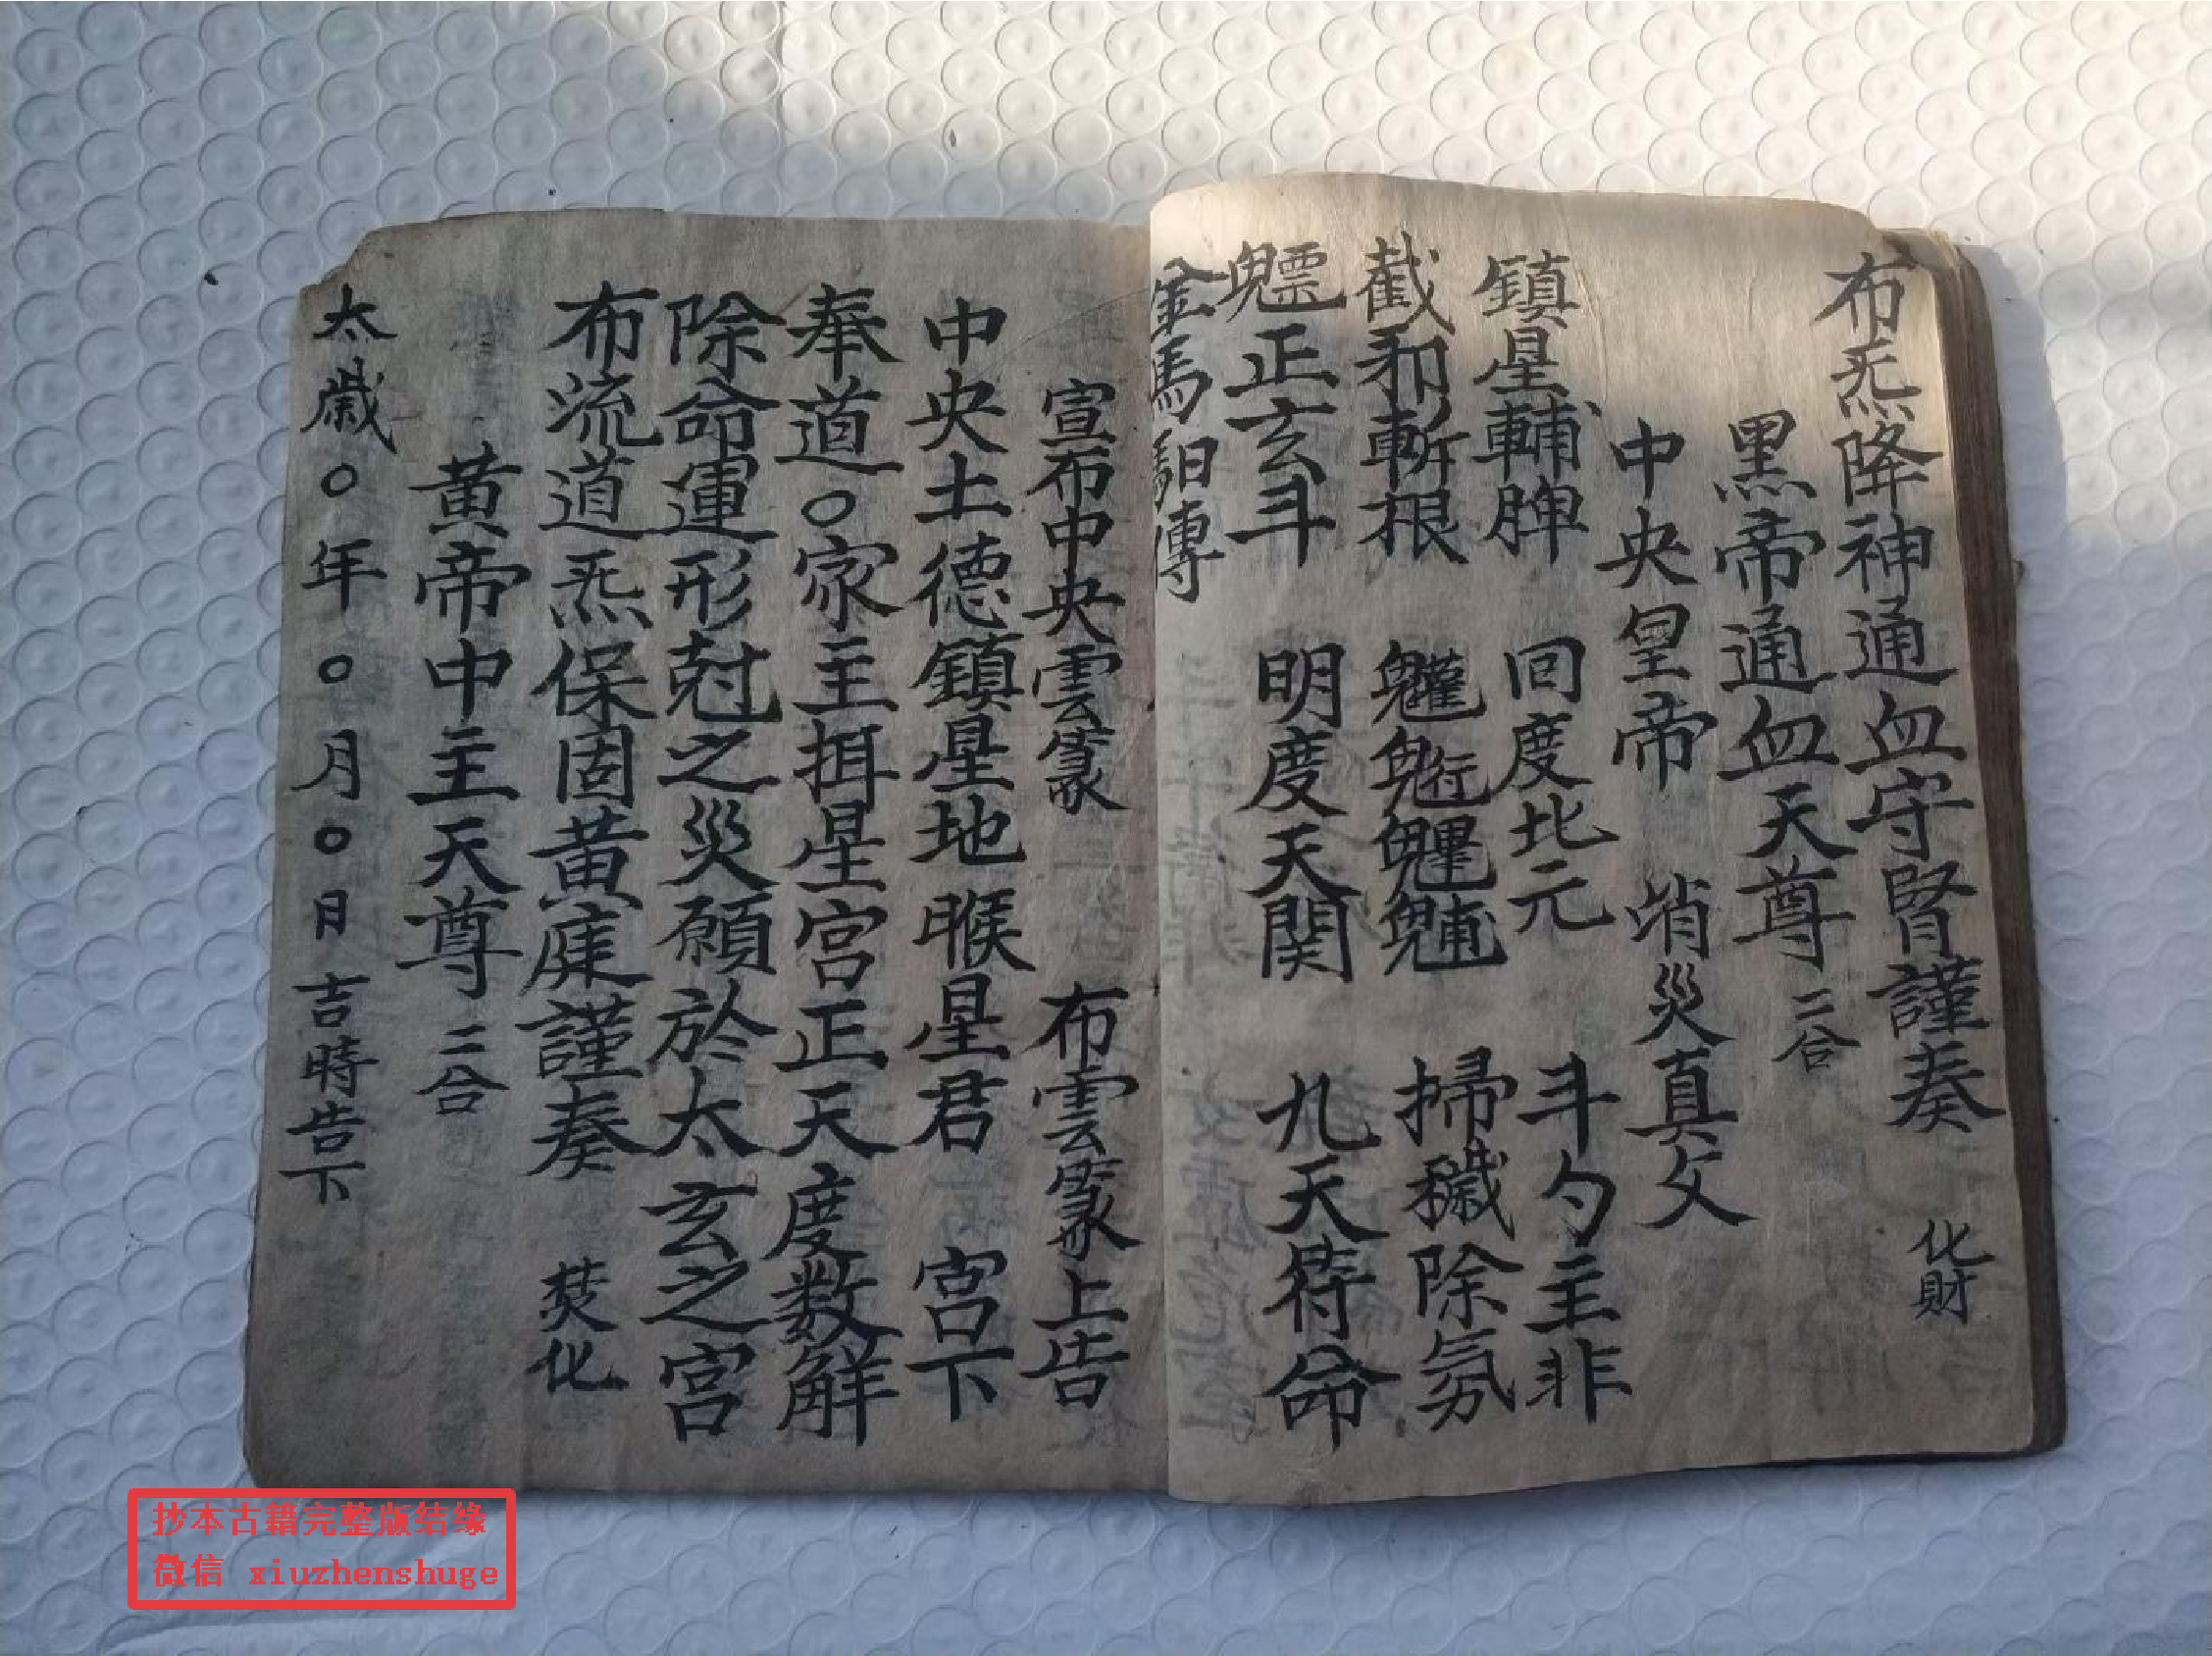 布炁降神通血守腎謹奏 化財
黑帝通血天尊 二合
中央皇帝 消災真父
鎮星輔脾 回度北元 斗勺主非
截邪斬根 魓魓 掃穢除氛
魒正玄斗 明度天関 九天待命
金馬馹傳
宣布中央雲篆 布雲篆上告
中央土德鎮星地睺星君 宫下
奉道〇家主揖星宫正天度数解
除命運形尅之災願於太玄之宫
布流道炁保固黄庭謹奏 焚化
黄帝中主天尊 二合
太歲〇年〇月〇日吉時告下
抄本古籍完整版结缘
微信 xiuzhenshuge